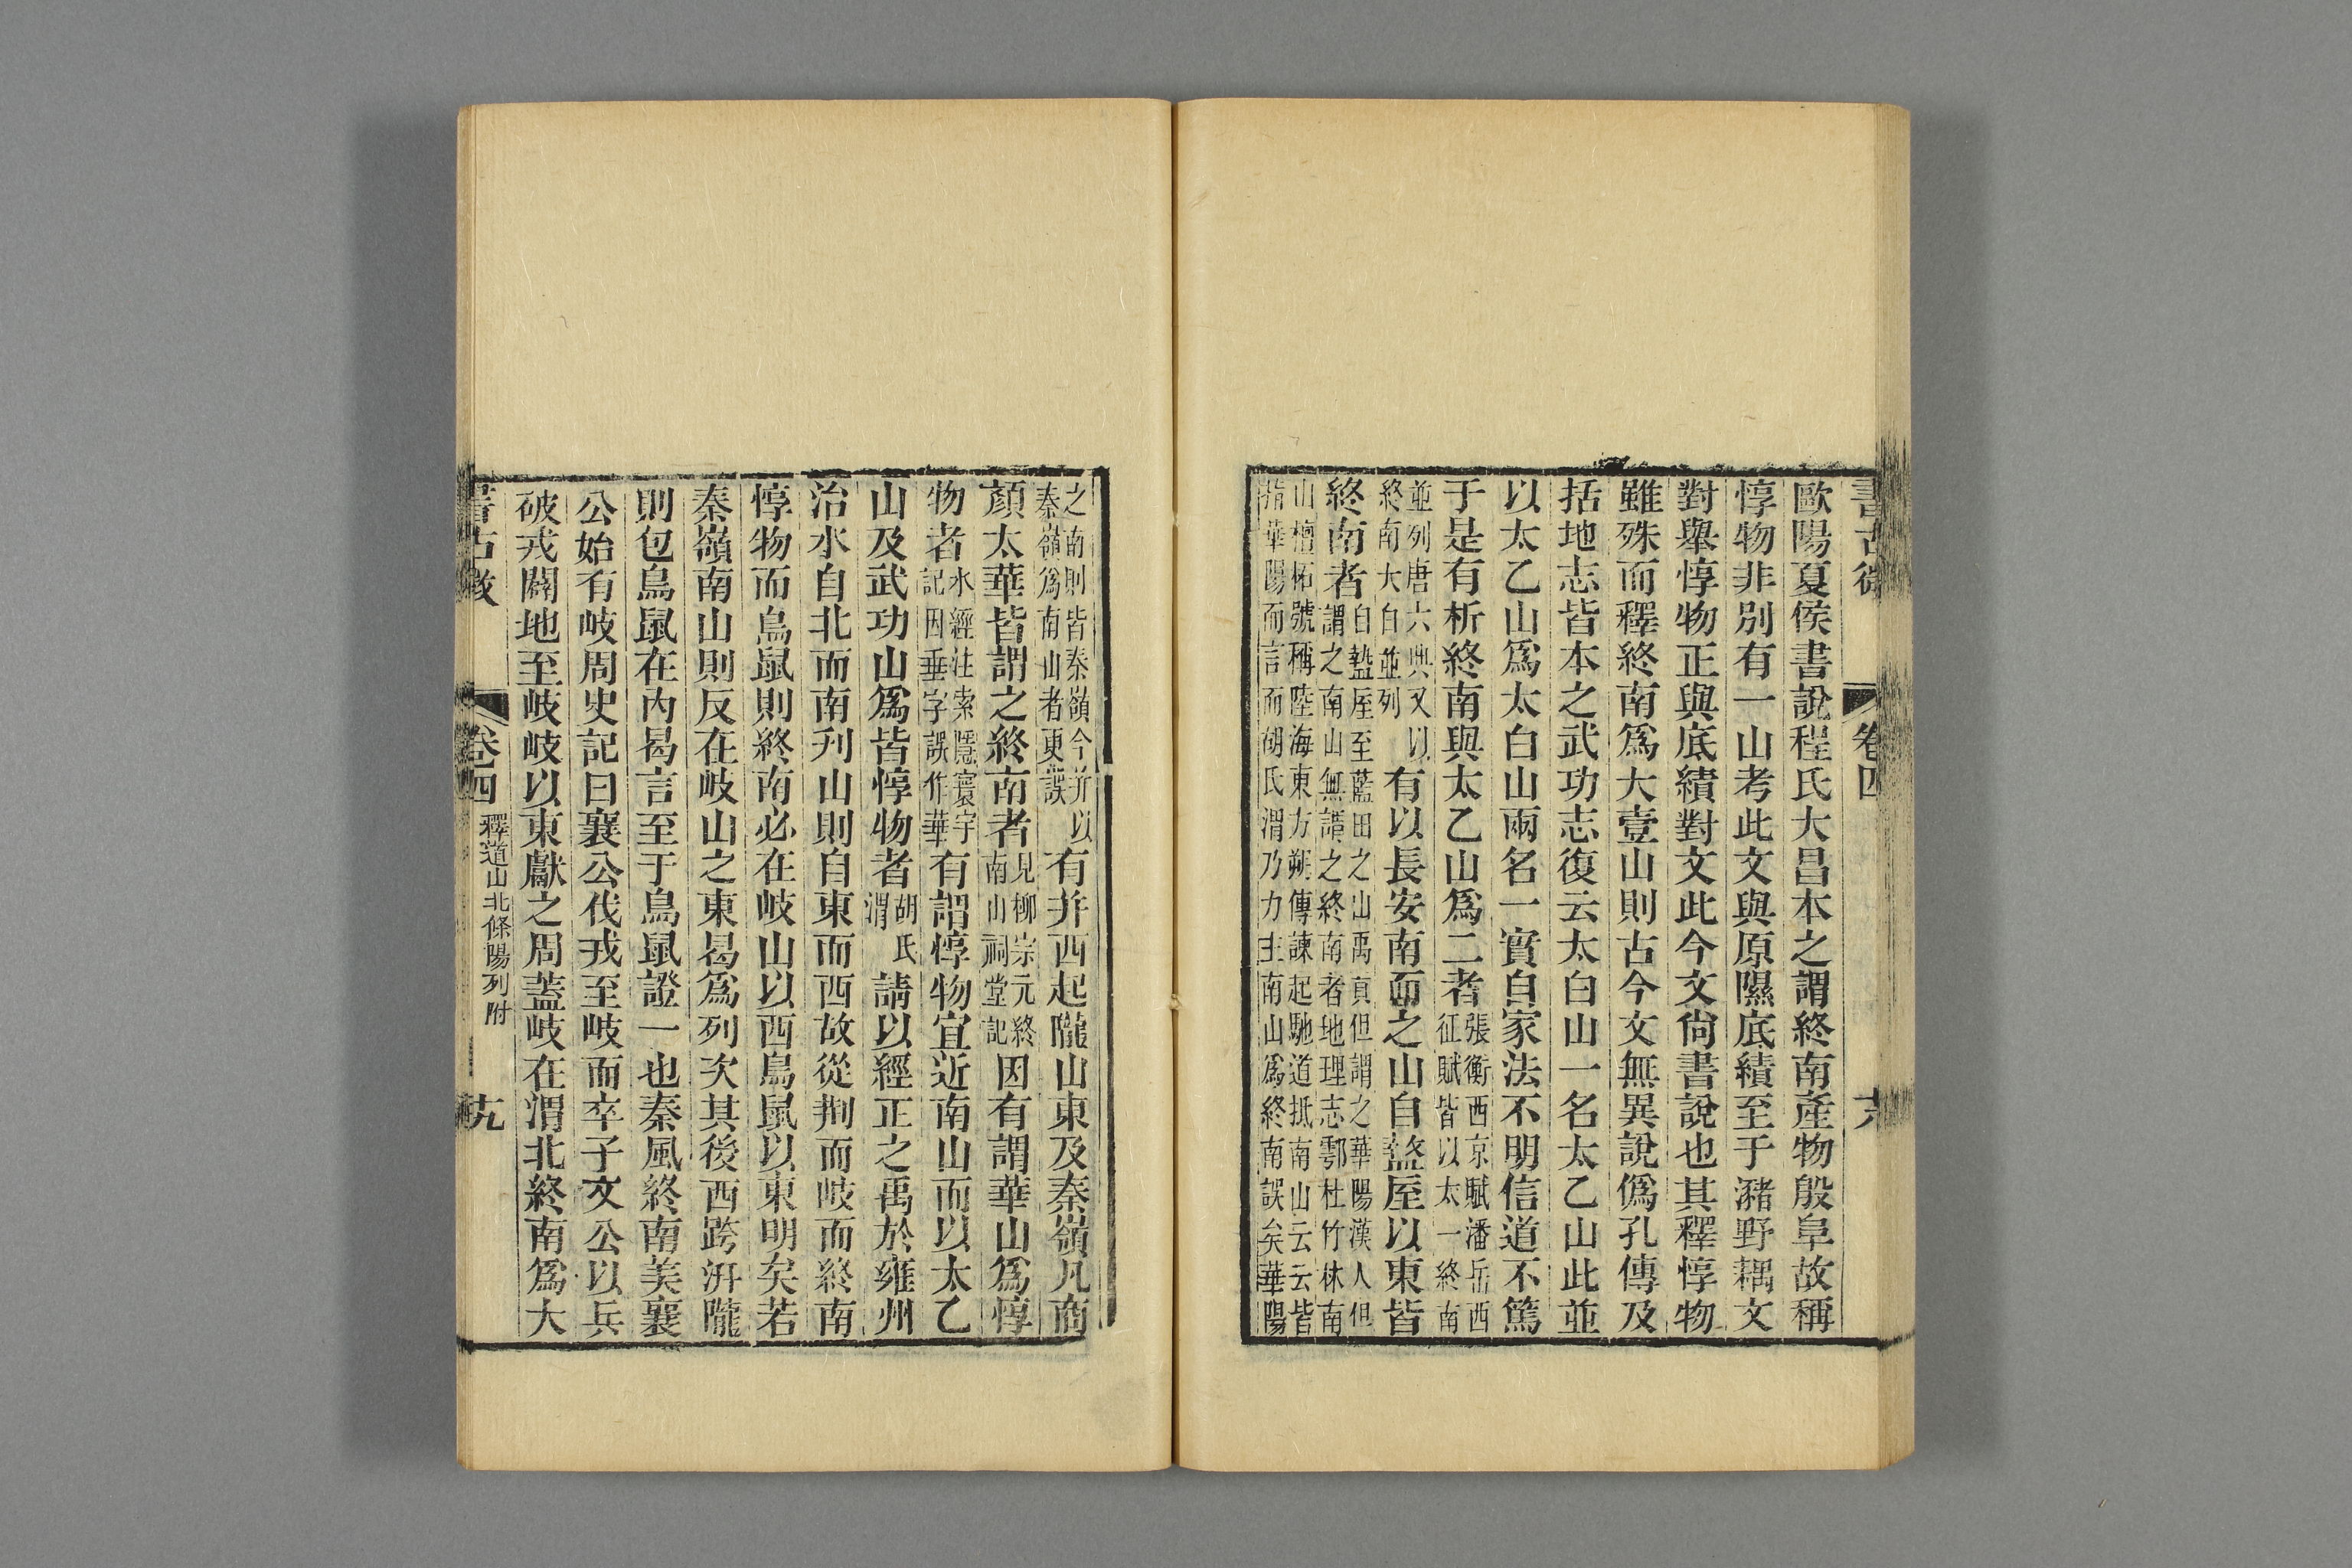 書古微
卷四
歐陽夏侯書說程氏大昌本之謂終南產物殷阜故稱
惇物非別有一山考此文與原隰底績至于豬野耦文
對舉惇物正與底績對文此今文尙書說也其釋惇物
雖殊而釋終南爲大壹山則古今文無異說僞孔傳及
括地志皆本之武功志復云太白山一名太乙山此並
以太乙山爲太白山兩名一實自家法不明信道不篤
于是有析終南與太乙山爲二者張衡西京賦潘岳西征賦皆以太一終南
並列唐六典又以終南大白並列有以長安南面之山自盩厔以東皆
終南者自盩厔至藍田之山禹貢但謂之華陽漢人但謂之南山無謂之終南者地理志鄠杜竹林南
山檀柘號稱陸海東方朔傳諫起馳道抵南山云云皆指華陽而言而胡氏渭乃力主南山爲終南誤矣華陽
之南則皆秦嶺今并以秦嶺爲南山者更誤有并西起隴山東及秦嶺凡商
顏太華皆謂之終南者見柳宗元終南山祠堂記因有謂華山爲惇
物者水經注索隱寰宇記因垂字誤作華有謂惇物宜近南山而以太乙
山及武功山爲皆惇物者胡氏渭請以經正之禹於雍州
治水自北而南刋山則自東而西故從荆而岐而終南
惇物而鳥鼠則終南必在岐山以西鳥鼠以東明矣若
秦嶺南山則反在岐山之東曷爲列次其後西跨汧隴
則包鳥鼠在內曷言至于鳥鼠證一也秦風終南美襄
公始有岐周史記曰襄公伐戎至岐而卒子文公以兵
破戎闢地至岐岐以東獻之周蓋岐在渭北終南爲大
書古微
卷四
釋道山北條陽列附
十九